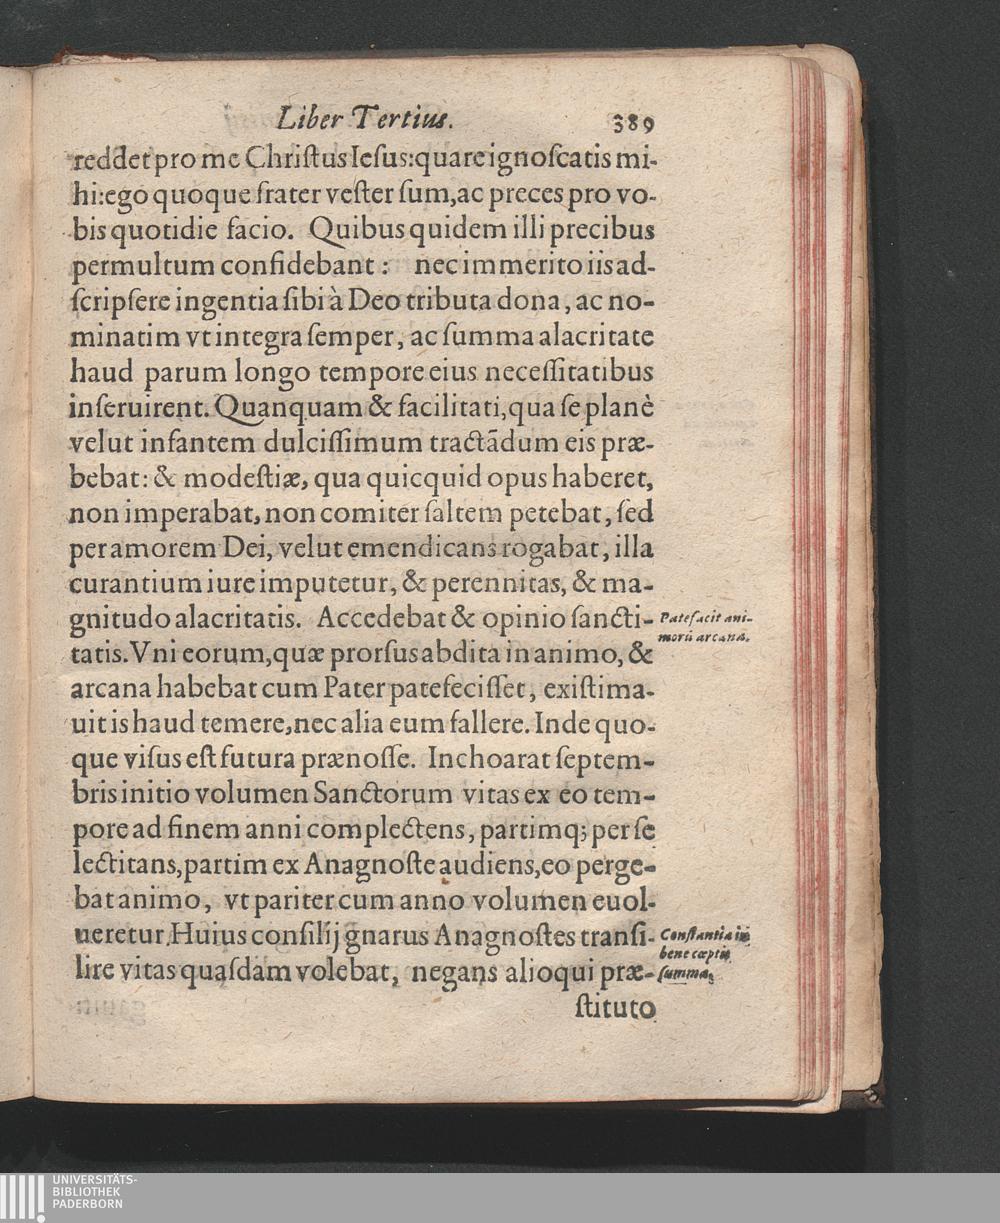 Liber Tertius. 389
reddet pro me Chriſtus Ieſus: quare ignoſcatis mi-
hi: ego quoque frater veſter ſum, ac preces pro vo-
bis quotidie facio. Quibus quidem illi precibus
permultum confidebant : nec immerito iis ad-
ſcripſere ingentia ſibi à Deo tributa dona, ac no-
minatim vt integra ſemper, ac ſumma alacritate
haud parum longo tempore eius neceſſitatibus
inſeruirent. Quanquam & facilitati, qua ſe planè
velut infantem dulciſſimum tractādum eis præ-
bebat: & modeſtiæ, qua quicquid opus haberet,
non imperabat, non comiter ſaltem petebat, ſed
per amorem Dei, velut emendicans rogabat, illa
curantium iure imputetur, & perennitas, & ma-
gnitudo alacritatis. Accedebat & opinio ſancti-
Patefacit ani-
morū arcana.
tatis. Vni eorum, quæ prorſus abdita in animo, &
arcana habebat cum Pater patefeciſſet, exiſtima-
uit is haud temere, nec alia eum fallere. Inde quo-
que viſus eſt futura prænoſſe. Inchoarat ſeptem-
bris initio volumen Sanctorum vitas ex eo tem-
pore ad finem anni complectens, partimq; per ſe
lectitans, partim ex Anagnoſte audiens, eo perge-
bat animo, vt pariter cum anno volumen euol-
ueretur. Huius conſilij gnarus Anagnoſtes tranſi-
Conſtantia in
bene cœptis
ſumma.
lire vitas quaſdam volebat, negans alioqui præ-
ſtituto
UNIVERSITÄTS-
BIBLIOTHEK
PADERBORN